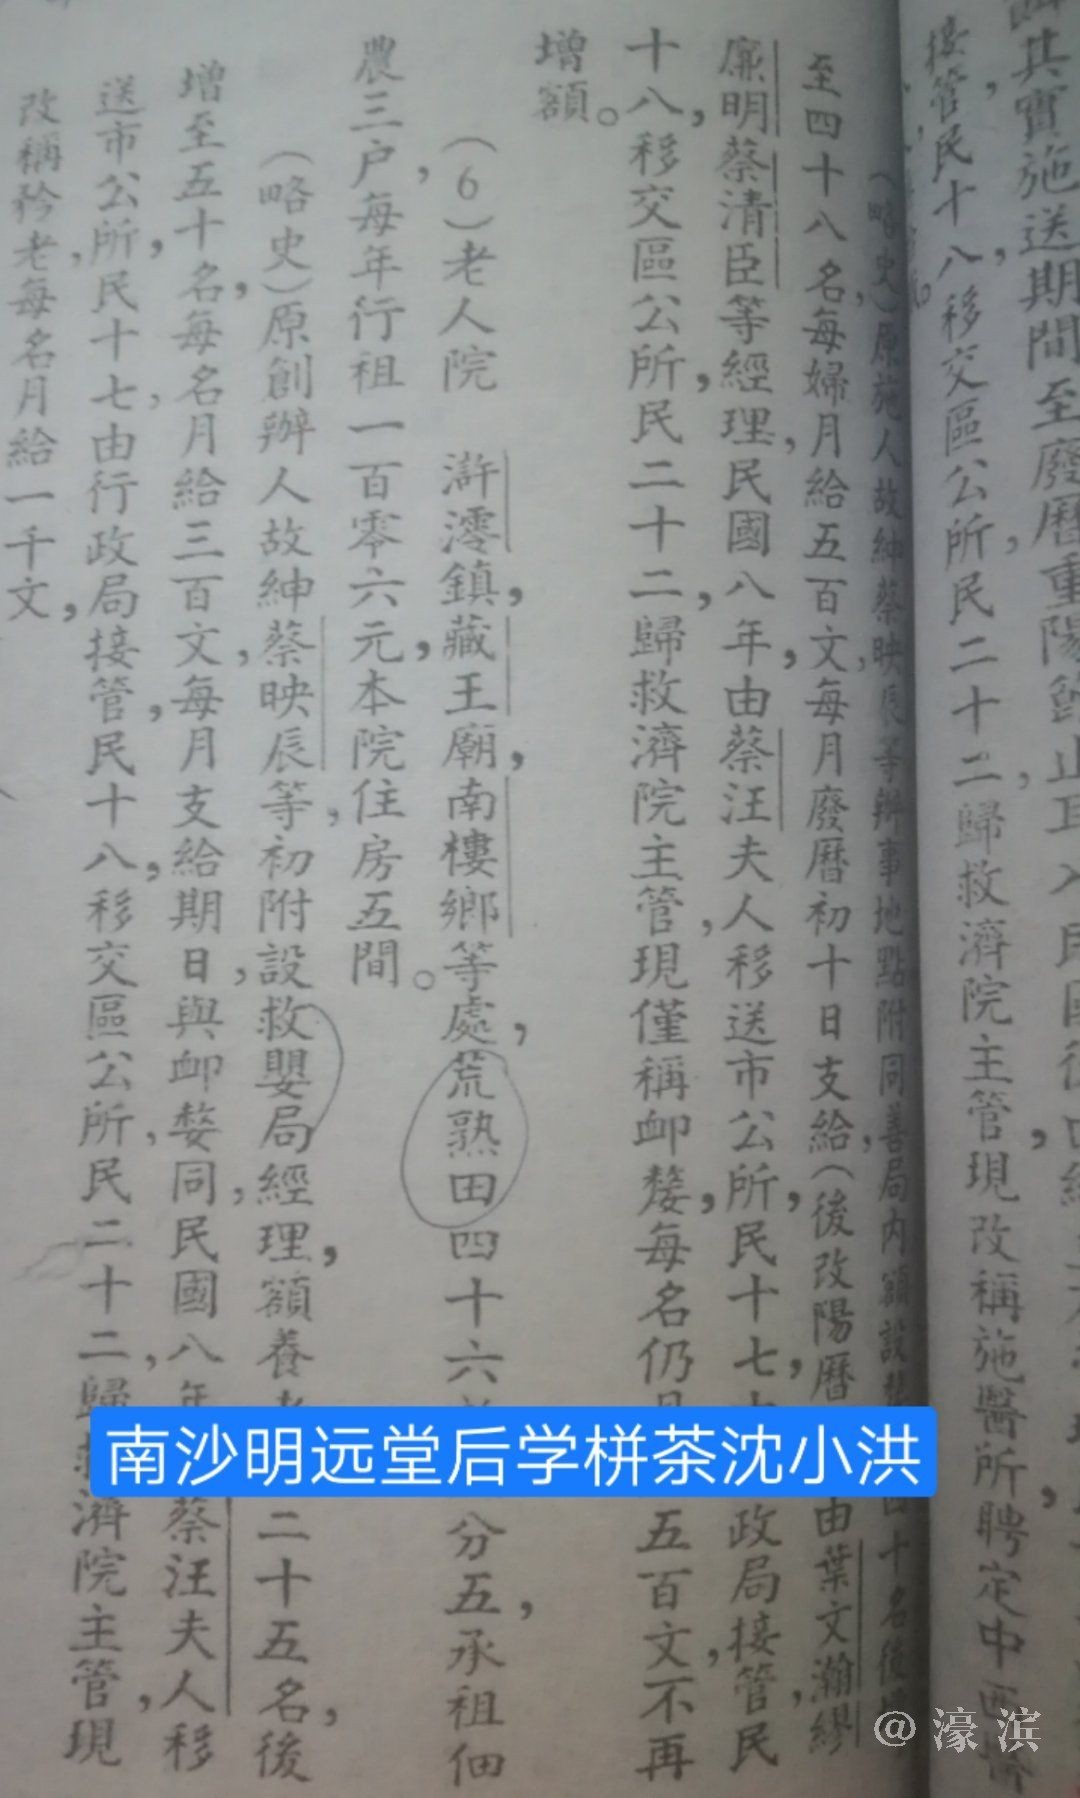 其實施送期間至廢曆重陽節止
接管民十八移交區公所，民二十二歸救濟院主管，現改稱施醫所聘定中西
（略史）原施人故紳蔡映辰等，辦事地點附同善局內，額設
四十名後
至四十八名，每婦月給五百文，每月廢曆初十日支給，（後改陽曆
由葉文瀚繆
廉明蔡清臣等經理，民國八年，由蔡汪夫人移送市公所，民十七
政局接管，民
十八，移交區公所，民二十二，歸救濟院主管，現僅稱卹嫠，每名仍
五百文，不再
增額。
（6）老人院　滸澪鎮，藏王廟，南樓鄉等處，荒熟田四十六
分五，承祖佃
農三户，每年行祖一百零六元，本院住房五間。
（略史）原創辦人故紳蔡映辰等，初附設救嬰局經理，額養
二十五名，後
增至五十名，每名月給三百文，每月支給期日，與卹嫠同，民國八年
蔡汪夫人移
送市公所，民十七，由行政局接管，民十八，移交區公所，民二十二，歸
濟院主管，現
改稱矜老，每名月給一千文，
南沙明远堂后学栟茶沈小洪
@濠滨